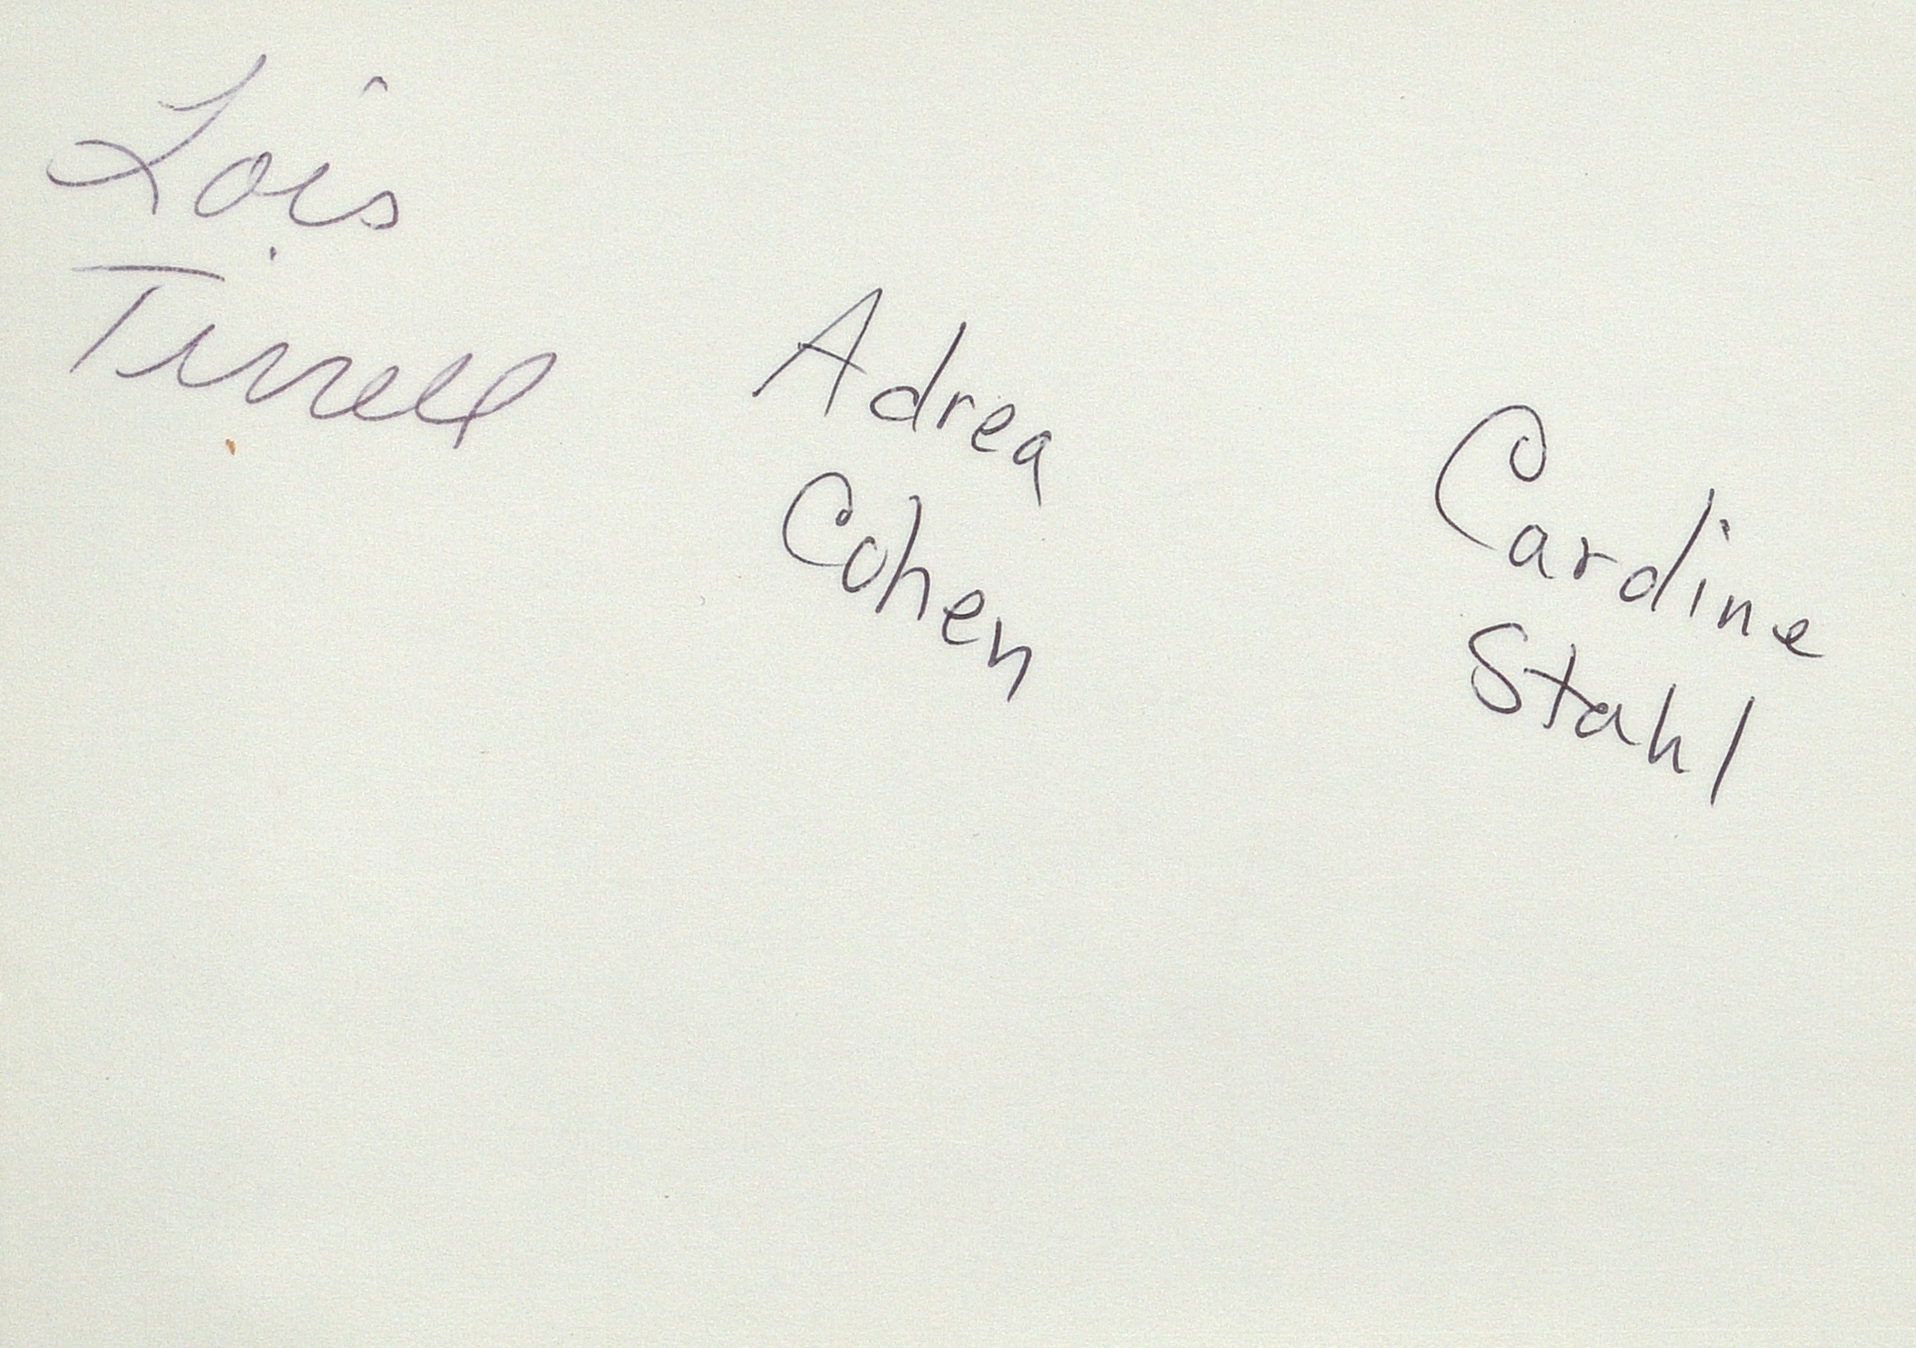 Lois
Tirrell
Adrea
Cohen
Caroline
Stahl